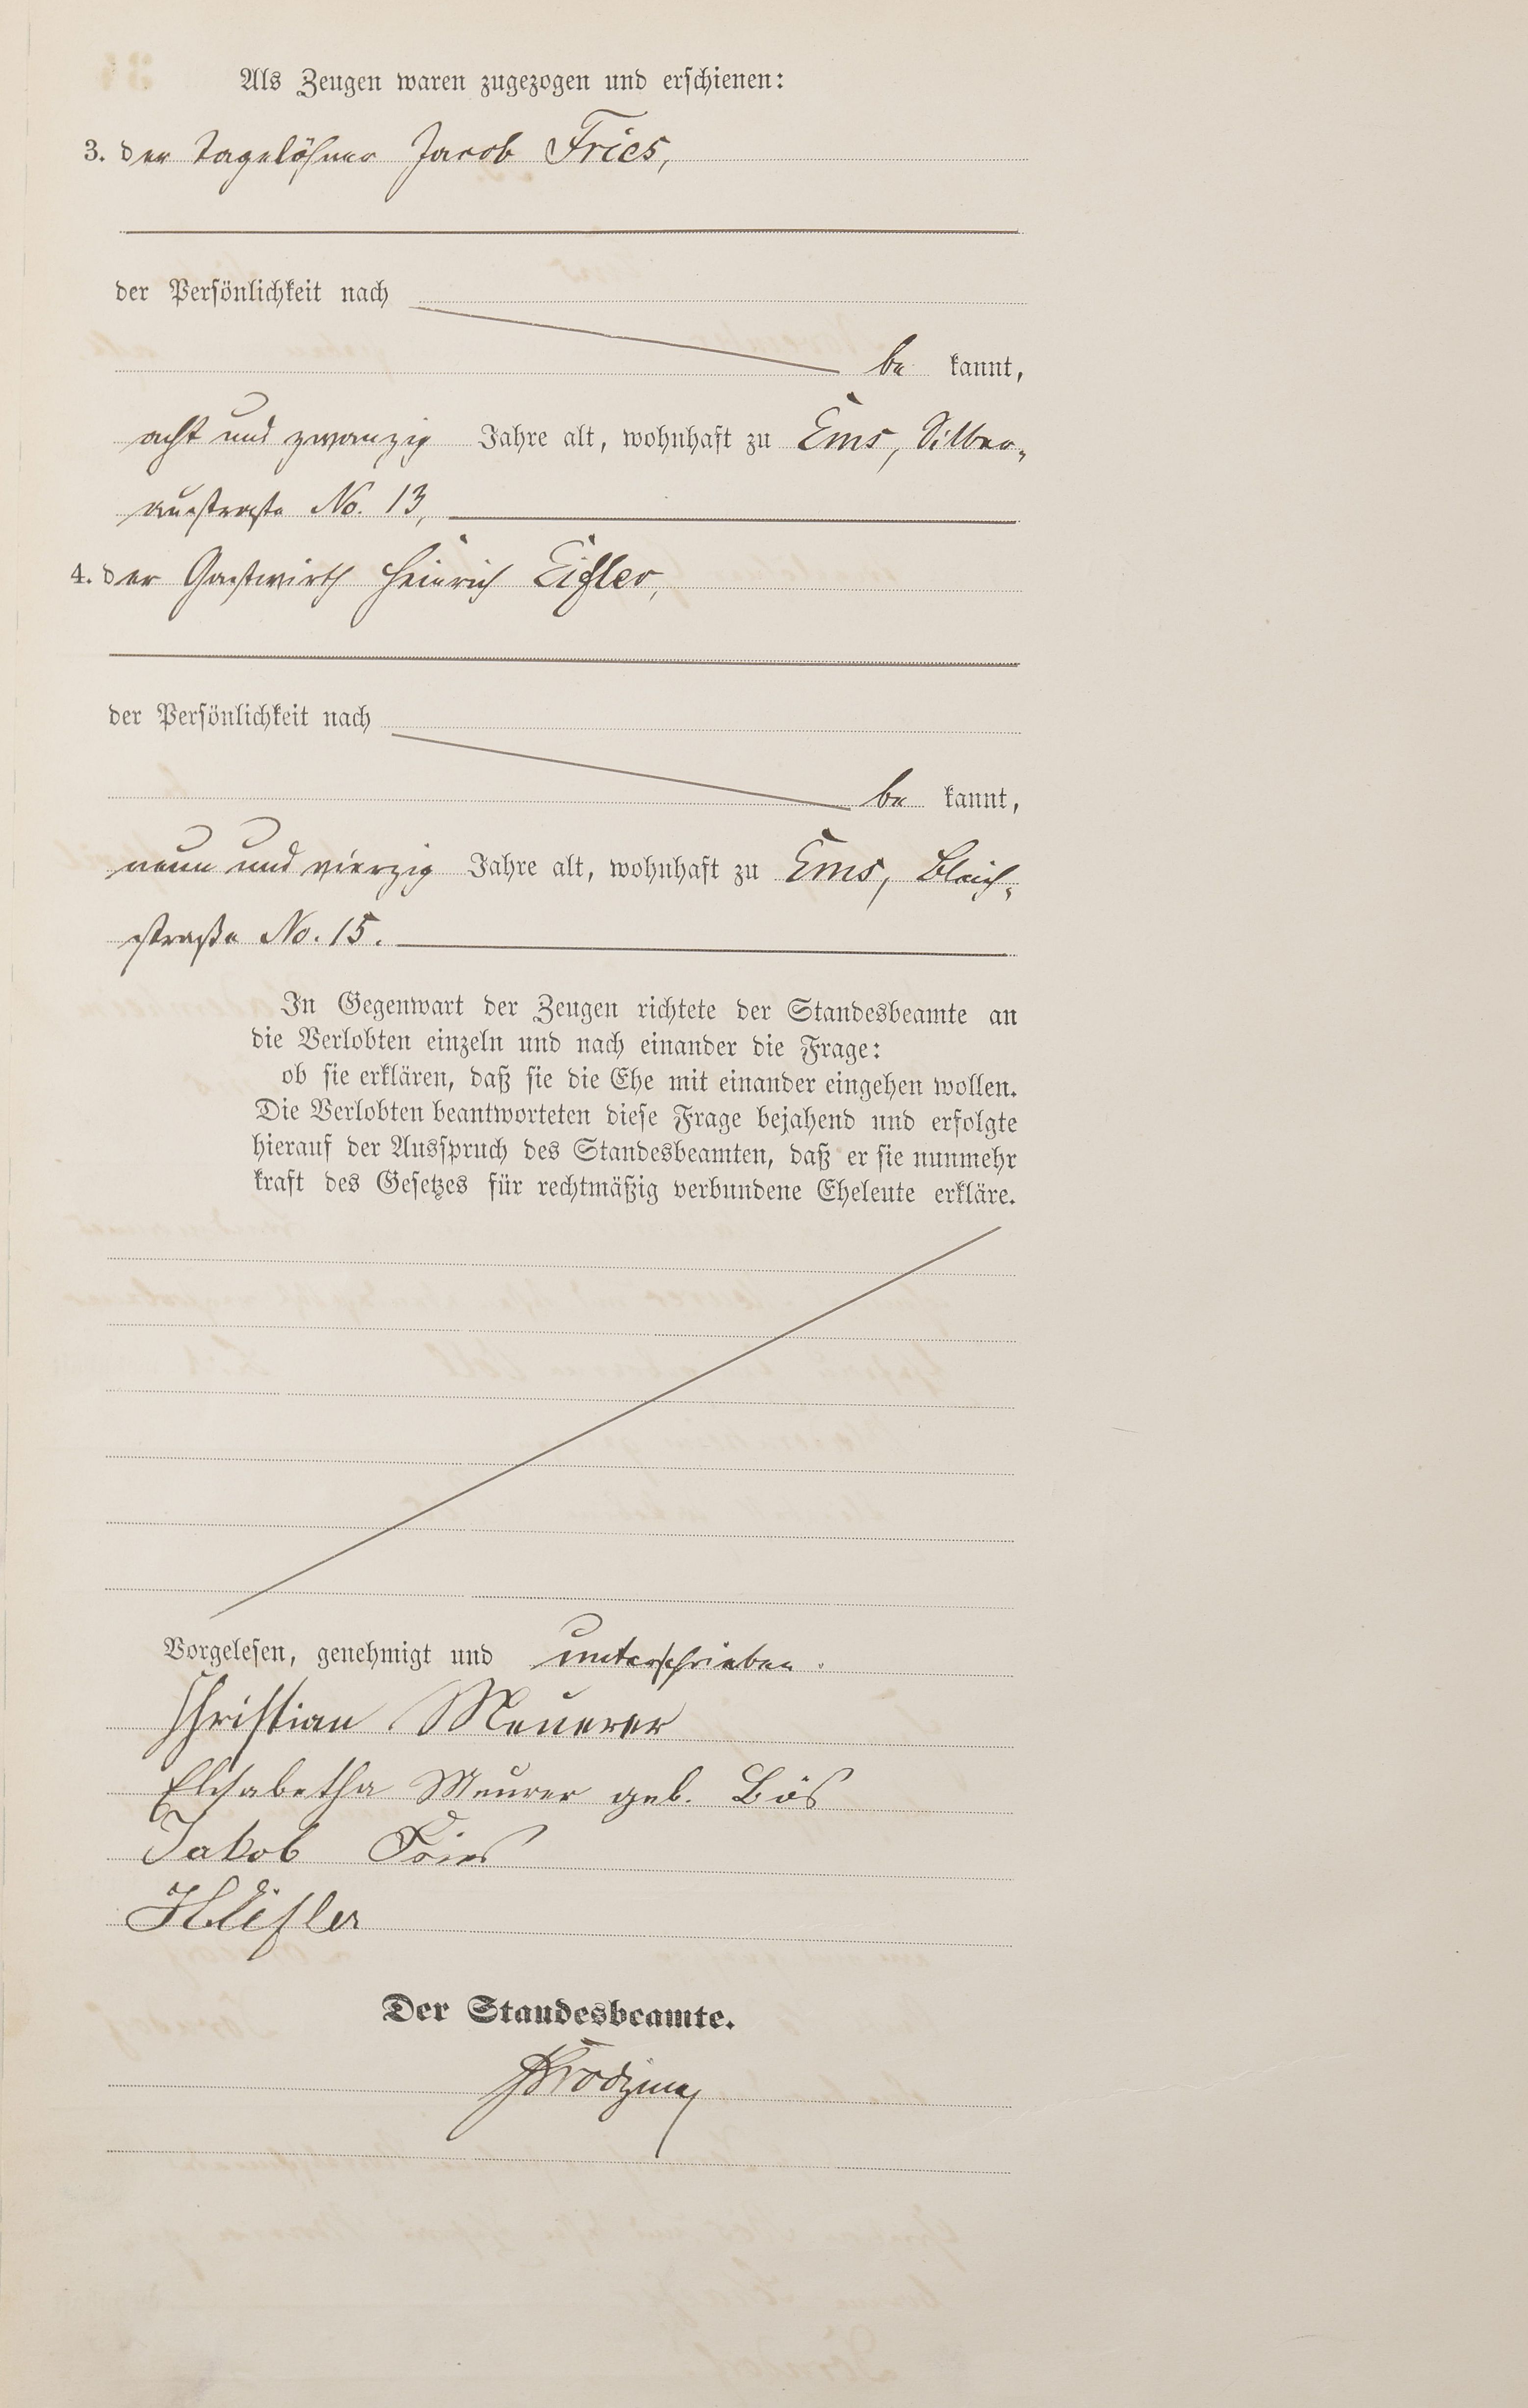 Als Zeugen waren zugezogen und erschienen:
3. der Tagelöhner Jacob Fries,
der Persönlichkeit nach
be kannt,
acht und zwanzig Jahre alt, wohnhaft zu Ems, Silber-
austraße No. 13,
4. der Gastwirth Heinrich Eifler,
der Persönlichkeit nach
be kannt,
neun und vierzig Jahre alt, wohnhaft zu Ems, Bleich-
straße No. 15.
In Gegenwart der Zeugen richtete der Standesbeamte an
die Verlobten einzeln und nach einander die Frage:
ob sie erklären, daß sie die Ehe mit einander eingehen wollen.
Die Verlobten beantworteten diese Frage bejahend und erfolgte
hierauf der Ausspruch des Standesbeamten, daß er sie nunmehr
kraft des Gesetzes für rechtmäßig verbundene Eheleute erkläre.
Vorgelesen, genehmigt und unterschrieben.
Christian Meuerer
Elisabetha Meurer geb. Bös
Jakob Fries
H Eifler
Der Standesbeamte.